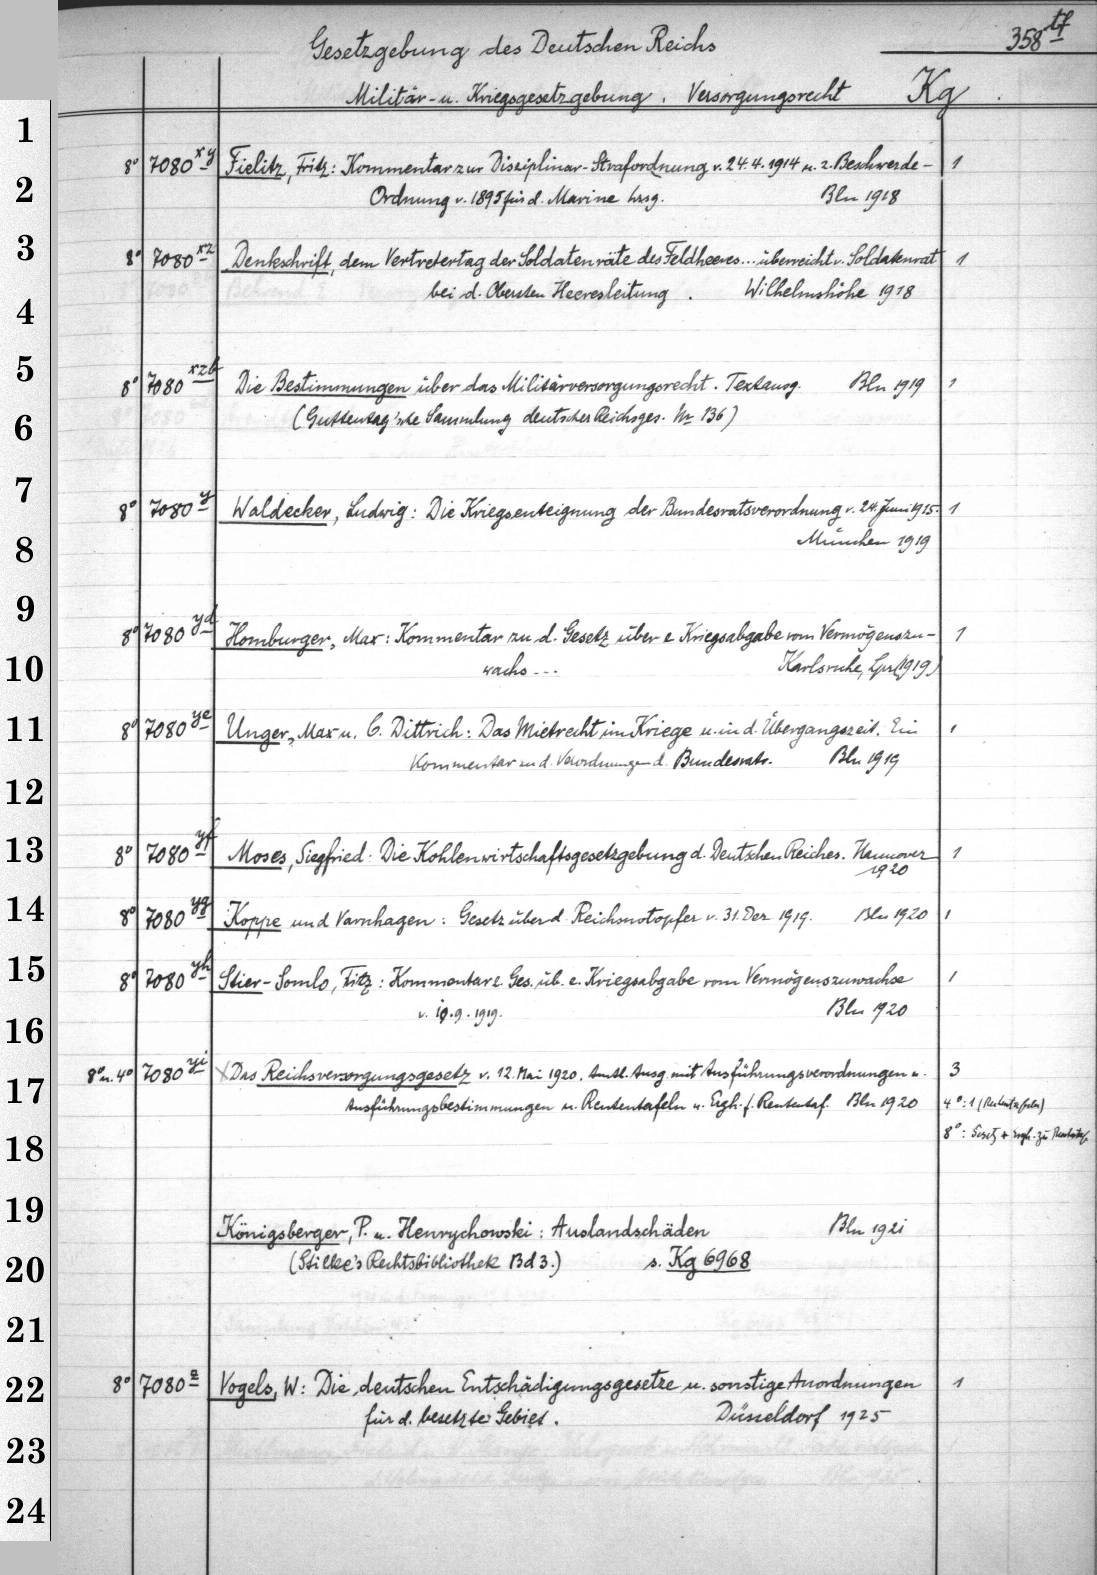 358tf
Gesetzgebung des Deutschen Reichs
Militär- u. Kriegsgesetzgebung. Versorgungsrecht Kg
1
8° 7080 xy Fielitz, Fritz: Kommentar zur Disziplinar-Strafordnung v. 24.4.1914 u. z. Beschwerde- 1
2 Ordnung v. 1895 für d. Marine hrsg. Bln 1918
3 8° 7080 xz Denkschrift, dem Vertretertag der Soldatenräte des Feldheeres... überreicht v. Soldatenrat 1
4 bei d. Obersten Heeresleitung. Wilhelmshöhe 1918
5 8° 7080 xzb Die Bestimmungen über das Militärversorgungsrecht. Textausg. Bln 1919 1
6 (Guttentag'sche Sammlung deutscher Reichsges. Nr 136)
7 8° 7080 y Waldecker, Ludwig: Die Kriegsenteignung der Bundesratsverordnung v. 24. Juni 1915. 1
8 München 1919
9
8° 7080 yd Homburger, Max: Kommentar zu d. Gesetz über e Kriegsabgabe vom Vermögenszu- 1
10 wachs... Karlsruhe, Lpz (1919)
11 8° 7080 ye Unger, Max u. C. Dittrich: Das Mietrecht im Kriege u. in d. Übergangszeit. Ein 1
Kommentar zu d. Verordnungen d. Bundesrats. Bln 1919
12
13 8° 7080 yf Moses, Siegfried: Die Kohlenwirtschaftsgesetzgebung d. Deutschen Reiches. Hannover 1
1920
14 8° 7080 yg Koppe und Varnhagen: Gesetz über d. Reichsnotopfer v. 31. Dez 1919. Bln 1920 1
15 8° 7080 yh Stier-Somlo, Fritz: Kommentar z. Ges. üb. e. Kriegsabgabe vom Vermögenszuwachse 1
16 v. 10.9.1919. Bln 1920
8° u. 4° 7080 yi x Das Reichsversorgungsgesetz v. 12. Mai 1920. Amtl. Ausg. mit Ausführungsverordnungen u. 3
17 Ausführungsbestimmungen u. Rententafeln u. Ergh. f. Rententaf. Bln 1920 4°: 1 (Rententafeln)
18 8°: Gesetz + Ergh. zu
19 Königsberger, P. u. Henrychowski: Auslandschäden Bln 1921
20 (Stilke's Rechtsbibliothek Bd 3.) s. Kg 6968
21
22 8° 7080 z Vogels, W: Die deutschen Entschädigungsgesetze u. sonstige Anordnungen 1
für d. besetzte Gebiet. Düsseldorf 1925
23
24